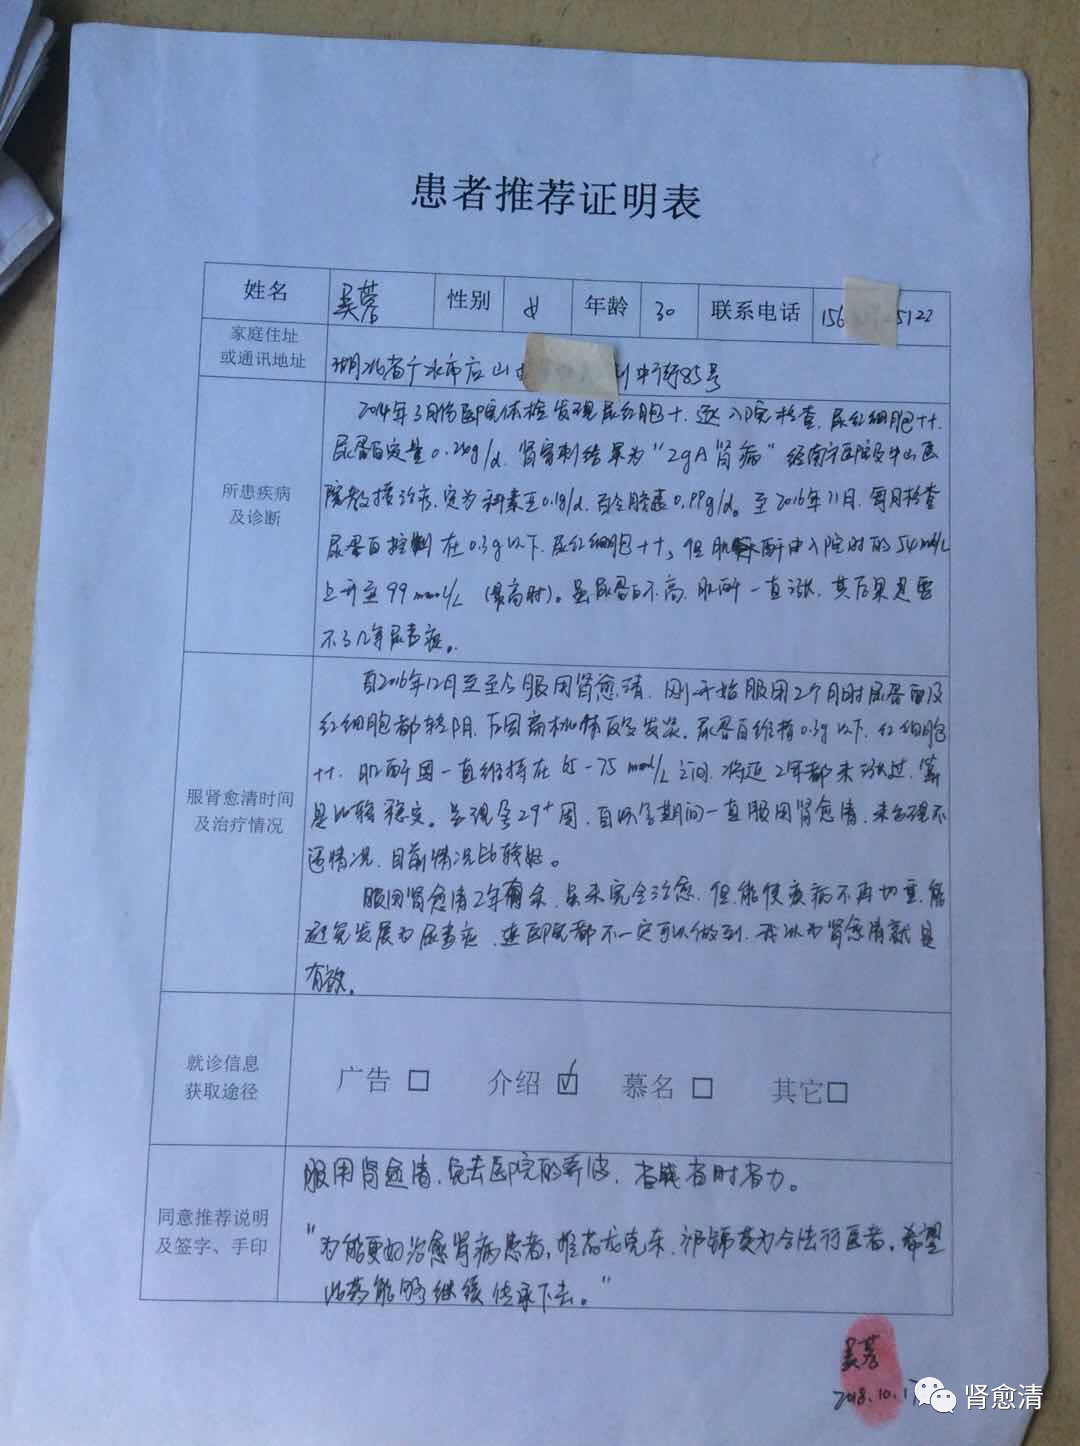 患者推荐证明表
姓名 吴蓉 性别 女 年龄 30 联系电话 156 5122
家庭住址
或通讯地址
湖北省广水市应山 中街85号
所患疾病
及诊断
2014年3月份医院体检发现尿红细胞+.遂入院检查.尿红细胞++.
尿蛋白定量0. g/d.肾穿刺结果为“IgA肾病”经南方医院 中山医
院教授治疗.定为科素亚0.1g/d.百令胶囊0.99g/d。至2016年11月.每月检查
尿蛋白控制在0.3g以下.尿红细胞++,但肌酐由入院时的54mmol/L
上升至99mmol/L(最高时)。虽尿蛋白不高.肌酐一直涨.其后果是要
不了几年尿毒症.
服肾愈清时间
及治疗情况
自2016年12月至至今服用肾愈清.刚开始服用2个月时尿蛋白及
红细胞都转阴.后因扁桃体反复发炎.尿蛋白维持0.3g以下.红细胞
++.肌酐因一直维持在65-75mmol/L之间.将近2年都未涨过.算
是比较稳定。 现孕29⁺周.自怀孕期间一直服用肾愈清.未出现不
适情况.目前情况比较好。
服用肾愈清2年有余.虽未完全治愈.但能使疾病不再加重.能
避免发展为尿毒症.连医院都不一定可以做到.我认为肾愈清就是
有效.
就诊信息
获取途径
广告 □ 介绍 ☑ 慕名 □ 其它□
同意推荐说明
及签字、手印
服用肾愈清.免去医院的奔波.省钱省时省力。
“为能更好治愈肾病患者,推荐龙克东.祁锦英为合法行医者.希望
此药能够继续传承下去。”
吴蓉
2018.10.17
肾愈清